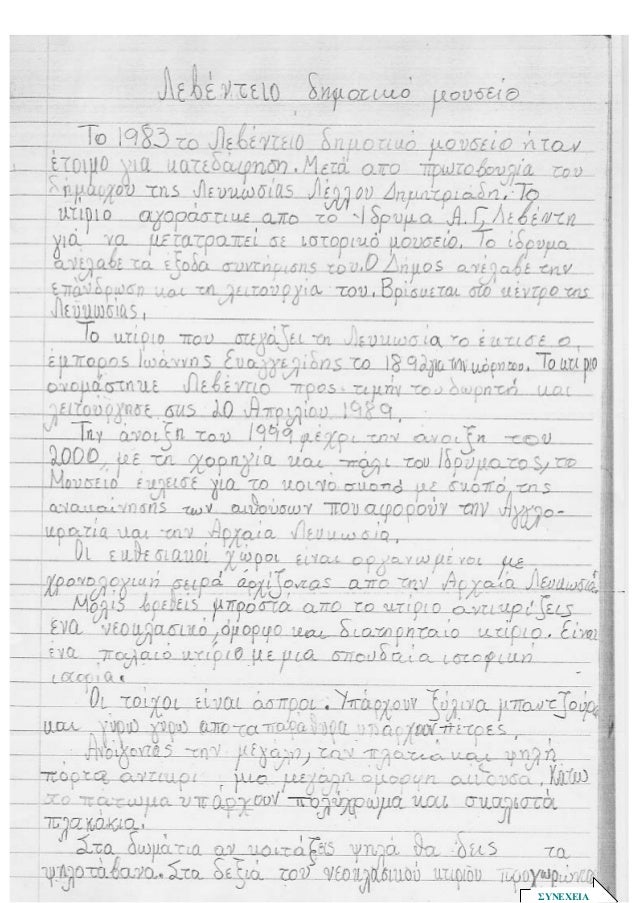 Λεβέντειο δημοτικό μουσείο
Το 1983 το Λεβέντειο δημοτικό μουσείο ήταν
έτοιμο για κατεδάφηση. Μετά απο πρωτοβουλία του
δήμαρχου της Λευκωσίας Λέλλου Δημητριάδη. Το
κτίριο αγοράστικε απο το Ιδρυμα Α.Γ. Λεβέντη
γιά να μετατραπεί σε ιστορικό μουσείο. Το ίδρυμα
ανέλαβε τα έξοδα συντήρισης του. Ο Δήμος ανέλαβε την
επάνδρωση και τη λειτουργία του. Βρίσκεται στο κέντρο της
Λευκωσίας.
Το κτίριο που στεγάζει τη Λευκωσία το έκτισε ο
έμπορος Ιωάννης Ευαγγελίδης το 1892 για την κόρη του. Το κτιριο
ονομάστηκε Λεβέντιο προς τιμήν του δωρητή και
λειτούργησε στις 20 Απριλίου 1989.
Την άνοιξη του 1999 μέχρι την άνοιξη του
2000 με τη χορηγία και πάλι του Ιδρύματος, το
Μουσείο έκλεισε για το κοινό σκοπό με σκοπό της
ανακαίνησης των αιθούσων που αφορούν την Αγγλο-
κρατία και την Αρχαία Λευκωσία.
Οι εκθεσιακοί χώροι είναι οργανωμένοι με
χρονολογική σειρά αρχίζοντας απο την Αρχαία Λευκωσία.
Μόλις βρεθείς μπροστά απο το κτίριο αντικρίζεις
ένα νεοκλασικό, όμορφο και διατηρηταίο κτίριο. Είναι
ένα παλαιό κτίριο με μια σπουδαία ιστοφική
Οι τοίχοι είναι άσπροι. Υπάρχουν ξύλινα μπαντζούρι
και γύρω γύρω απο τα παραθυρα υπάρχουν πέτρες.
Ανοίγοντας την μεγάλη, την πλατιά και ψηλή
πόρτα αντικρι μια μεγάλη όμορφη αίθουσα. Κάτω
το πάτωμα υπάρχουν πολύχρωμα και σκαλιστά
πλακάκια.
Στα δωμάτια αν κοιτάξεις ψηλά θα δεις τα
ψηλοτάβανα. Στα δεξιά του νεοκλασικού κτιριου προχωρώντα
ΣΥΝΕΧΕΙΑ